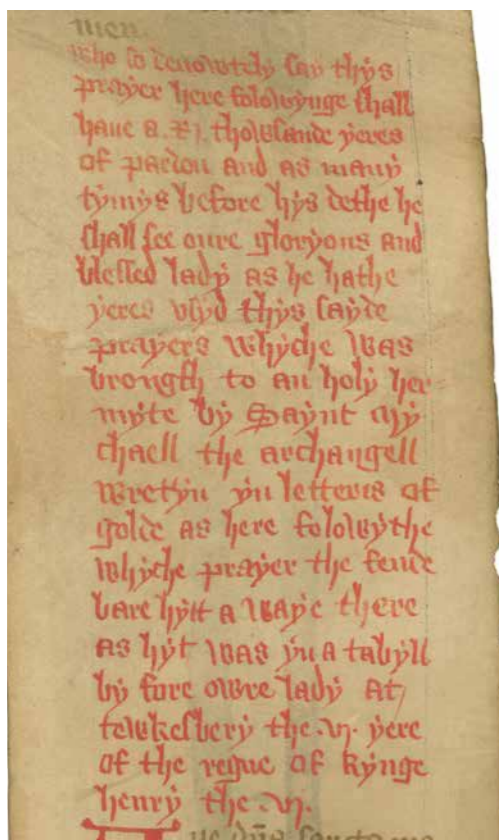 men.
who so deuowtely say thys
prayer here folowynge shall
haue a .xj. thowsande yeres
of pardon and as many
tymys before hys dethe he
shall see oure gloryous and
blessed lady as he hathe
yeres vsyd thys sayde
prayers whyche was
brougth to an holy her
myte by Saynt my
chaell the archangell
wretyn yn letteris of
golde as here folowythe
whyche prayer the fende
bare hytt a waye there
as hyt was yn a tabyll
by fore owre lady at
tewkesbery the .vj. yere
of the regne of kynge
henry the .vj.